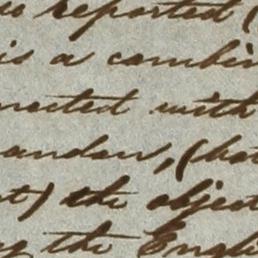 reported (
is a combin
nnected with
andar, (bot
t) the object
the Engli